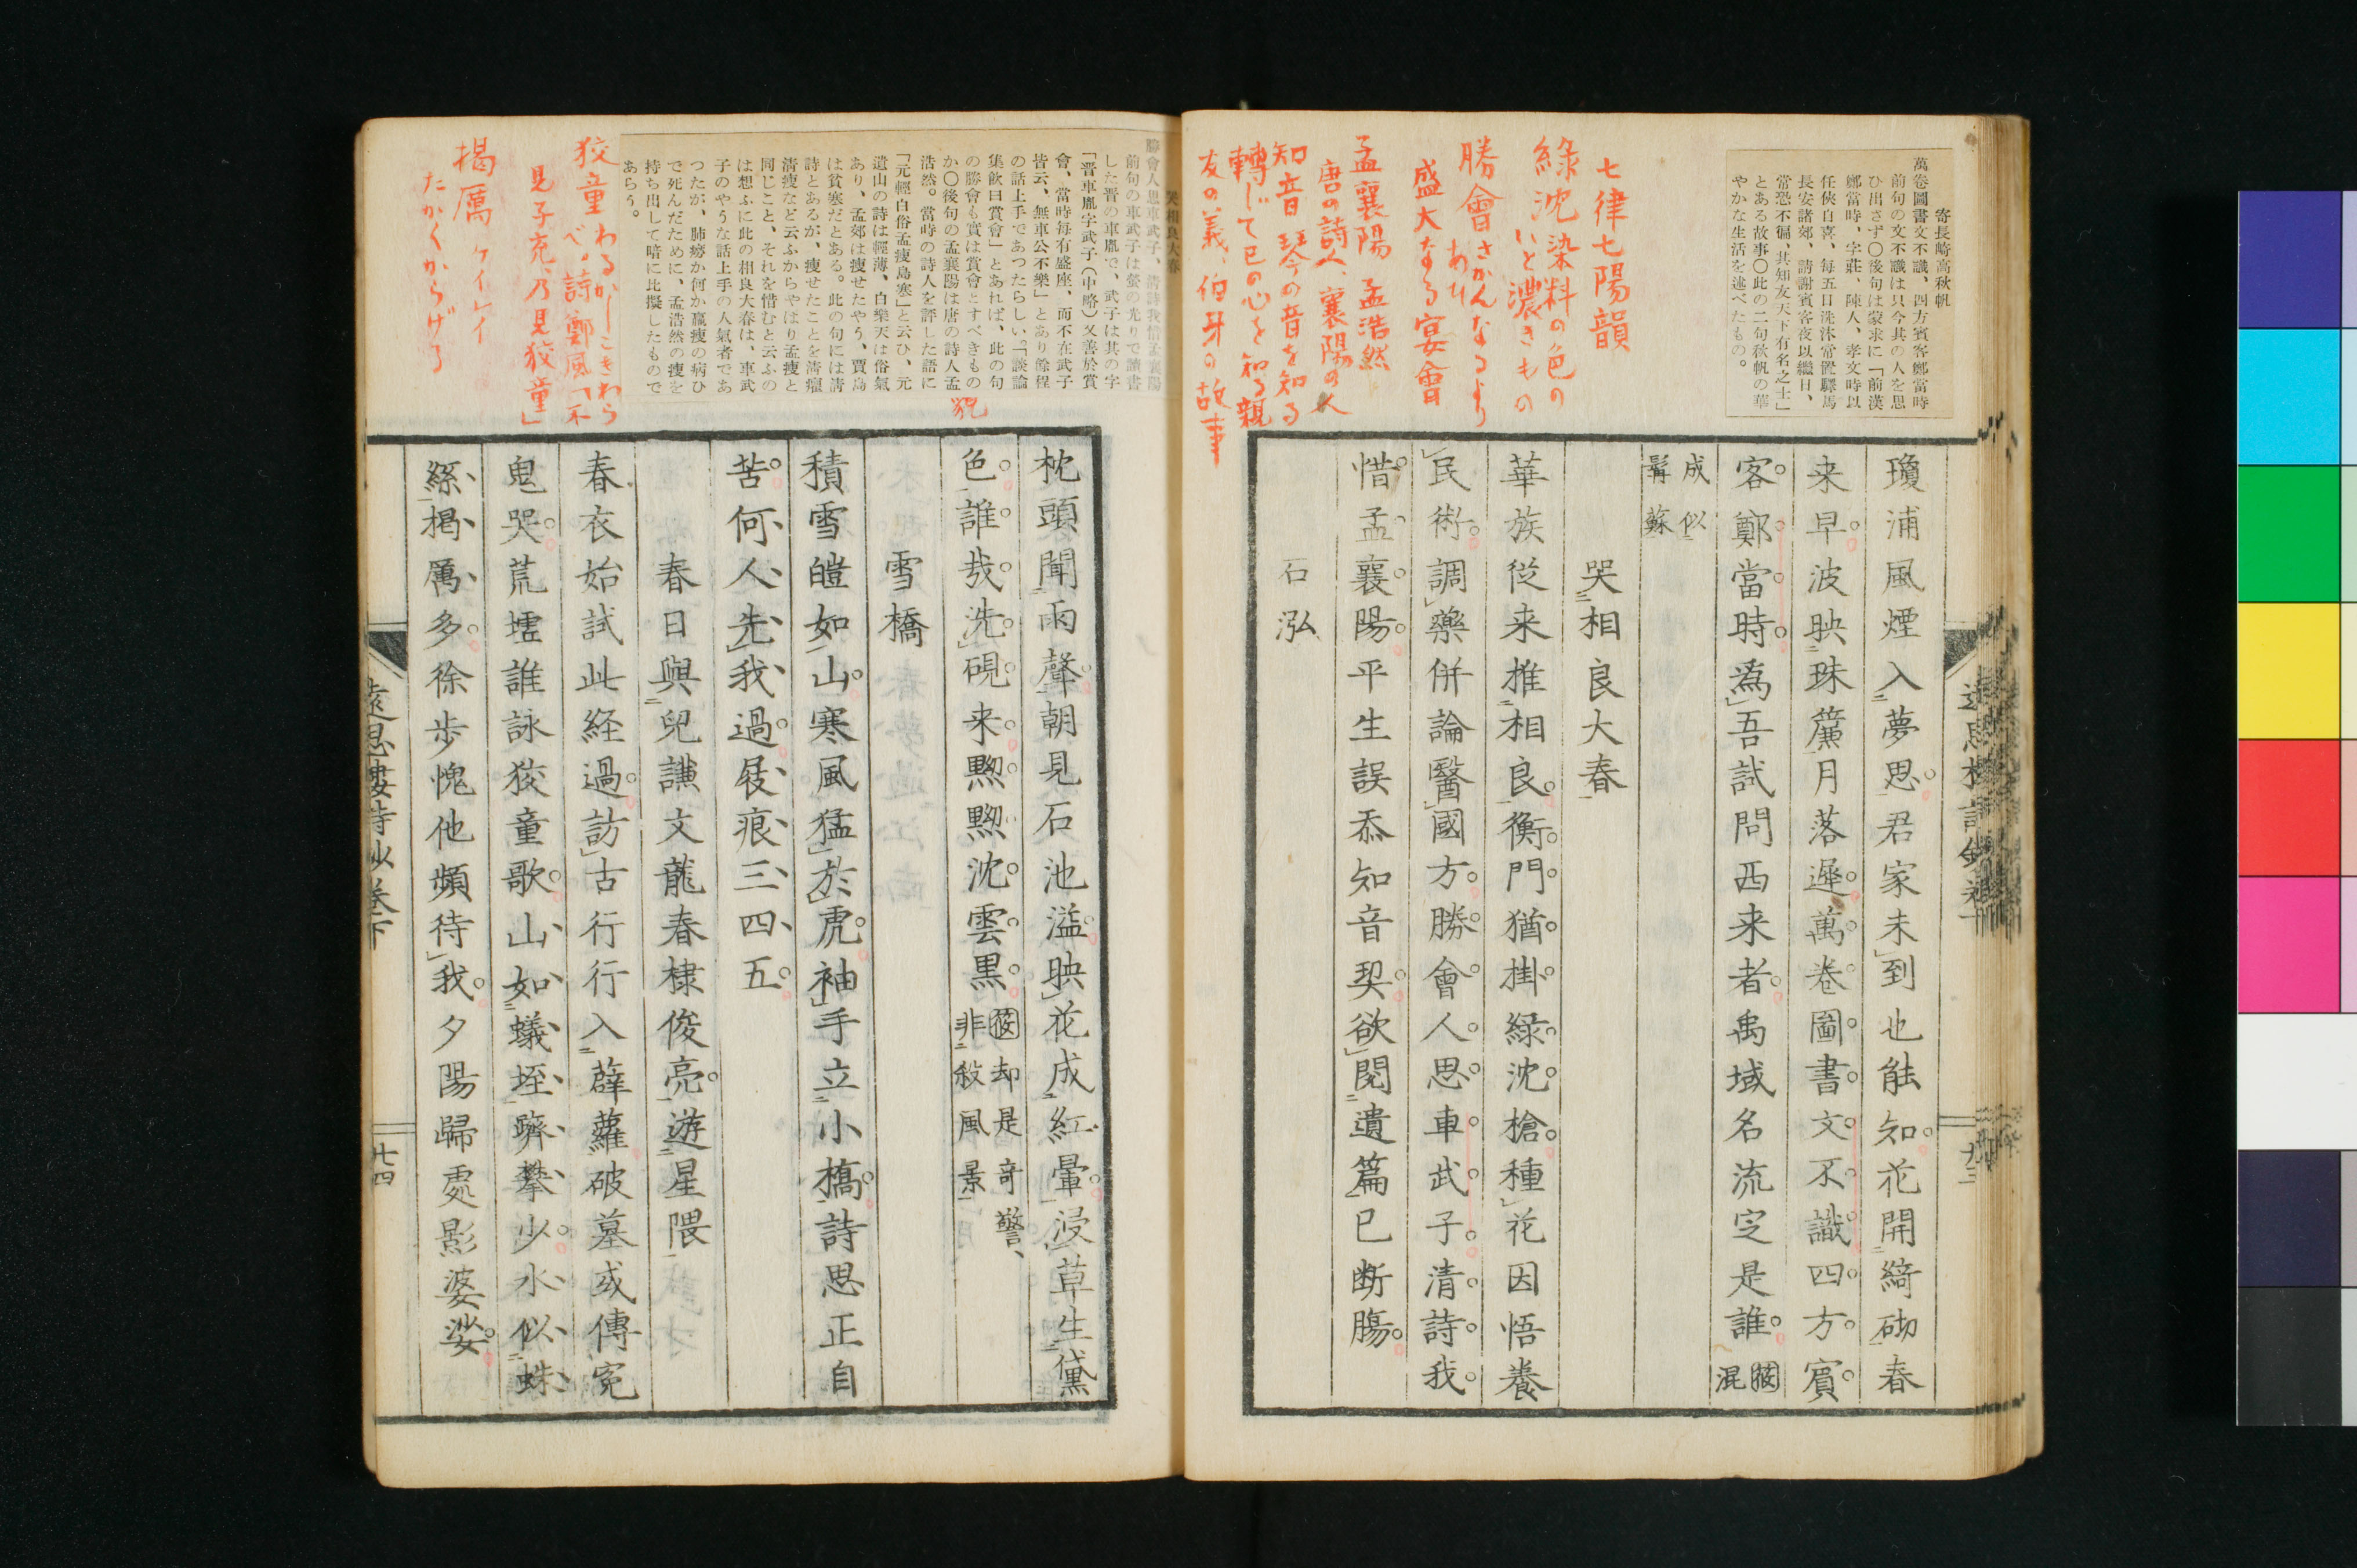 寄長崎高秋帆
萬卷圖書文不識、四方賓客鄭當時
前句の文不識は只今其の人を思
ひ出さず〇後句は蒙求に「前漢
鄭當時、字莊、陳人、孝文時以
任俠自喜、毎五日洗沐常置驛馬
長安諸郊、請謝賓客夜以繼日、
常恐不徧、其知友天下有名之士」
とある故事〇此の二句秋帆の華
やかな生活を述べたもの。
七律七陽韻
綠沈 染料の色の
いと濃きもの
勝會 さかんなるより
あひ
盛大なる宴會
孟襄陽 孟浩然
唐の詩人、襄陽の人
知音 琴の音を知る
轉じて己の心を知る親
友の義、伯牙の故事
瓊浦風煙入夢思君家未到也能知花開綺砌春
来早波映珠簾月落遲萬卷圖書文不識四方賓
客鄭當時為吾試問西来者禹域名流定是誰
成似
髯蘇
哭相良大春
華族従来推相良衡門猶掛緑沈槍種花因悟養
民術調藥併論醫國方勝會人思車武子清詩我
惜孟襄陽平生誤忝知音契欲閲遺篇已断腸
石泓
哭相良大春
勝會人思車武子、清詩我惜孟襄陽
前句の車武子は螢の光りで讀書
した晋の車胤で、武子は其の字
「晋車胤字武子(中略)又善於賞
會、當時毎有盛座、而不在武子
皆云、無車公不樂」とあり餘程
の話上手であつたらしい。「談論
集飲曰賞會」とあれば、此の句
の勝會も實は賞會とすべきもの
か〇後句の孟襄陽は唐の詩人孟
浩然。當時の詩人を評した語に
「元輕白俗孟瘦島寒」と云ひ、元
遺山の詩は輕薄、白樂天は俗氣
あり、孟郊は瘦せたやう、賈島
は貧寒だとある。此の句には清
詩とあるが、瘦せたことを清癯
清瘦など云ふからやはり孟瘦と
同じこと、それを惜むと云ふの
は想ふに此の相良大春は、車武
子のやうな話上手の人氣者であ
つたが、肺癆か何か羸瘦の病ひ
で死んだために、孟浩然の瘦を
持ち出して暗に比擬したもので
あらう。
狡童 わるがしこきわら
べ。詩鄭風「不
見子充、乃見狡童」
揭厲 ケイレイ
たかくからげる
枕頭聞雨聲朝見石池溢映花成紅暈浸草生黛
色誰哉洗硯来黙黙沈雲黒
却是奇警、
非敍風景
雪橋
積雪皚如山寒風猛於虎袖手立小橋詩思正自
苦何人先我過屐痕三四五
春日與兒謙文龍春棣俊亮遊星隈
春衣始試此経過訪古行行入薜蘿破墓或傳冤
鬼哭荒墟誰詠狡童歌山如蟻垤躋攀少水似蛛
絲揭厲多徐歩愧他頻待我夕陽歸處影婆娑
遠思樓詩鈔卷下
廿四